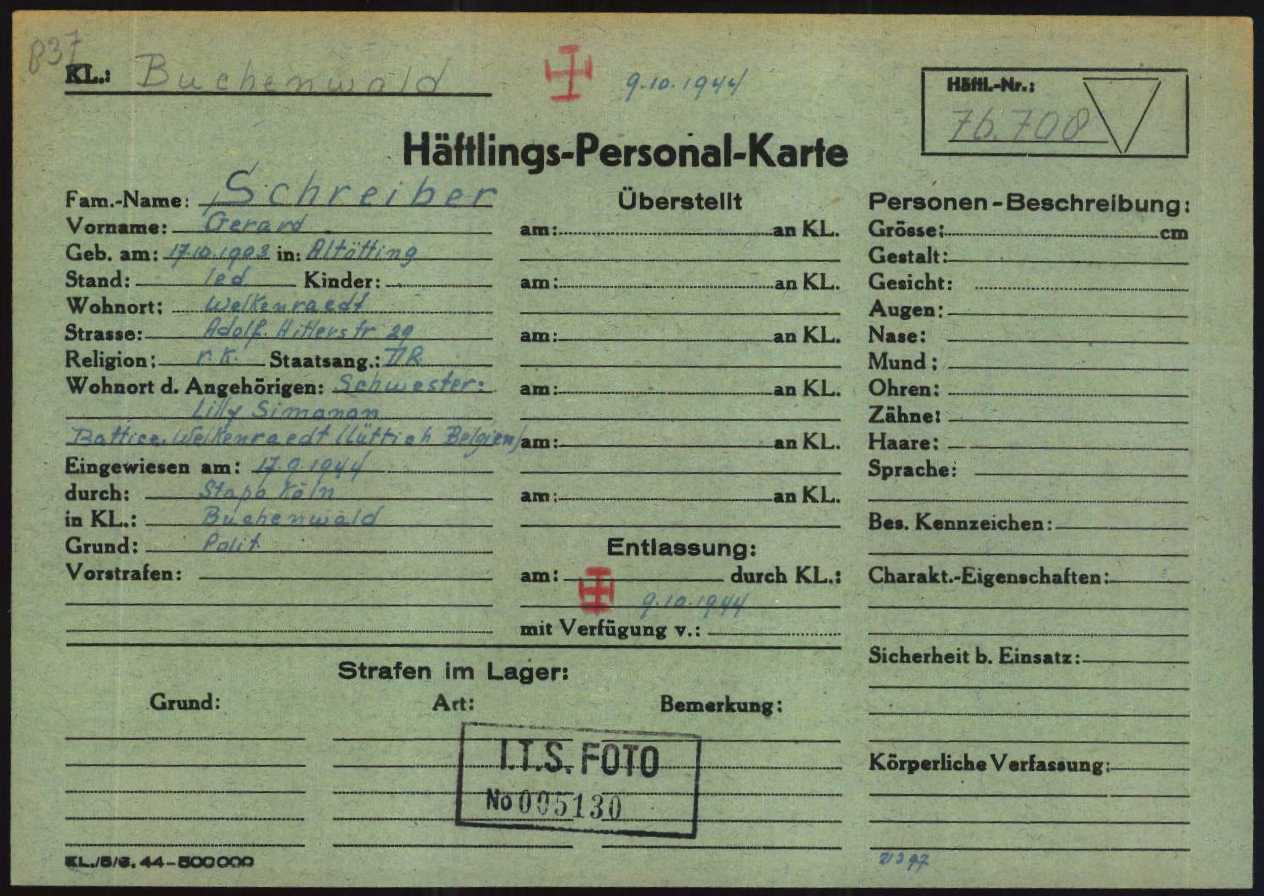 837
KL.: Buchenwald 9.10.1944
Häftl.-Nr.: 76.708
Häftlings-Personal-Karte
Fam.-Name: Schreiber
Vorname: Gerard
Geb. am: 17.10.1903 in: Altötting
Stand: led Kinder:
Wohnort: Welkenraedt
Strasse: Adolf. Hitlerstr 29
Religion: r.k. Staatsang.: DR
Wohnort d. Angehörigen: Schwester:
Lilly Simonon
Battice, Welkenraedt (Lüttich Belgien)
Eingewiesen am: 17.9.1944
durch: Stapo Köln
in KL.: Buchenwald
Grund: Polit
Vorstrafen:
Überstellt
am: an KL.
am: an KL.
am: an KL.
am: an KL.
am: an KL.
am: an KL.
Entlassung:
am: durch KL.:
9.10.1944
mit Verfügung v.:
Personen-Beschreibung:
Grösse: cm
Gestalt:
Gesicht:
Augen:
Nase:
Mund:
Ohren:
Zähne:
Haare:
Sprache:
Bes. Kennzeichen:
Charakt.-Eigenschaften:
Sicherheit b. Einsatz:
Körperliche Verfassung:
Strafen im Lager:
Grund: Art: Bemerkung:
I.T.S. FOTO
No 005130
KL./5/6. 44-500000